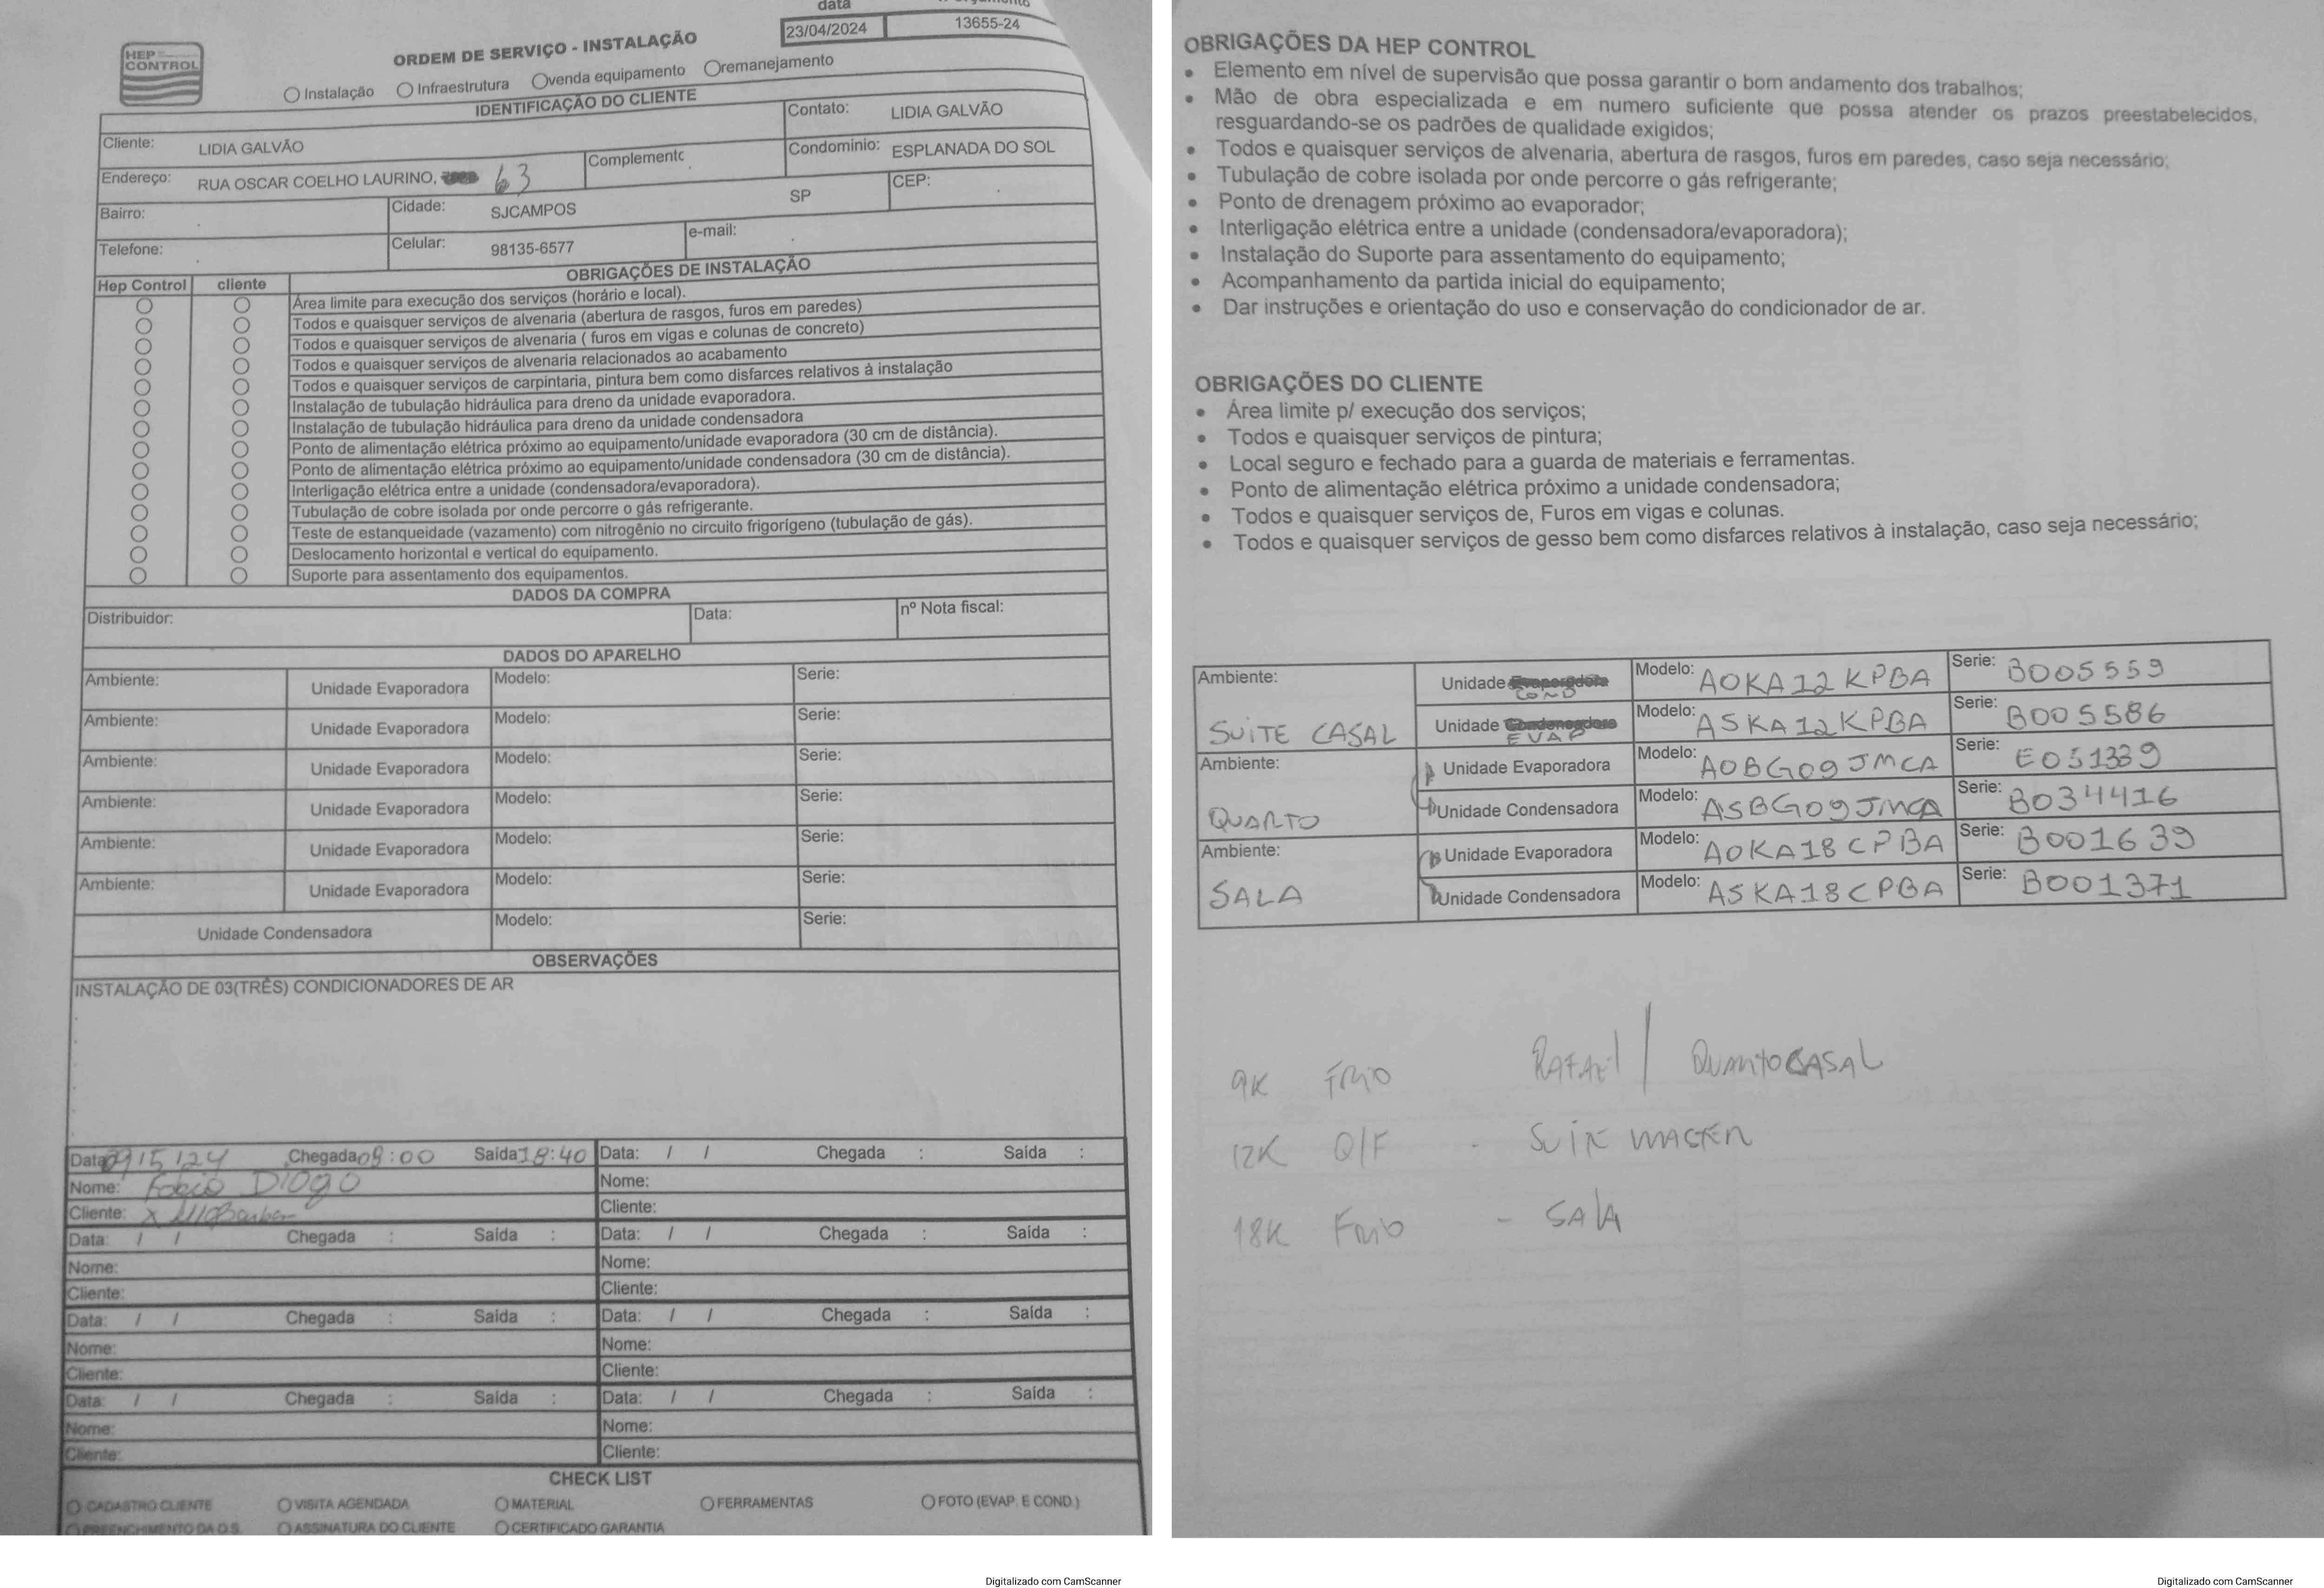 data
13655-24
23/04/2024
HEP
CONTROL
ORDEM DE SERVIÇO - INSTALAÇÃO
Instalação Infraestrutura venda equipamento remanejamento
IDENTIFICAÇÃO DO CLIENTE
Cliente: LIDIA GALVÃO Contato: LIDIA GALVÃO
Endereço: RUA OSCAR COELHO LAURINO, 63 Complemento Condominio: ESPLANADA DO SOL
Bairro: . Cidade: SJCAMPOS SP CEP: .
Telefone: . Celular: 98135-6577 e-mail: .
Hep Control cliente OBRIGAÇÕES DE INSTALAÇÃO
Área limite para execução dos serviços (horário e local).
Todos e quaisquer serviços de alvenaria (abertura de rasgos, furos em paredes)
Todos e quaisquer serviços de alvenaria ( furos em vigas e colunas de concreto)
Todos e quaisquer serviços de alvenaria relacionados ao acabamento
Todos e quaisquer serviços de carpintaria, pintura bem como disfarces relativos à instalação
Instalação de tubulação hidráulica para dreno da unidade evaporadora.
Instalação de tubulação hidráulica para dreno da unidade condensadora
Ponto de alimentação elétrica próximo ao equipamento/unidade evaporadora (30 cm de distância).
Ponto de alimentação elétrica próximo ao equipamento/unidade condensadora (30 cm de distância).
Interligação elétrica entre a unidade (condensadora/evaporadora).
Tubulação de cobre isolada por onde percorre o gás refrigerante.
Teste de estanqueidade (vazamento) com nitrogênio no circuito frigorígeno (tubulação de gás).
Deslocamento horizontal e vertical do equipamento.
Suporte para assentamento dos equipamentos.
DADOS DA COMPRA
Distribuidor: Data: nº Nota fiscal:
DADOS DO APARELHO
Ambiente: Unidade Evaporadora Modelo: Serie:
Ambiente: Unidade Evaporadora Modelo: Serie:
Ambiente: Unidade Evaporadora Modelo: Serie:
Ambiente: Unidade Evaporadora Modelo: Serie:
Ambiente: Unidade Evaporadora Modelo: Serie:
Ambiente: Unidade Evaporadora Modelo: Serie:
Unidade Condensadora Modelo: Serie:
OBSERVAÇÕES
INSTALAÇÃO DE 03(TRÊS) CONDICIONADORES DE AR
Data: 09/5/24 Chegada 08:00 Saída 18:40 Data: / / Chegada : Saída :
Nome: Diogo Nome:
Cliente: X Cliente:
Data: / / Chegada : Saída : Data: / / Chegada : Saída :
Nome: Nome:
Cliente: Cliente:
Data: / / Chegada : Saída : Data: / / Chegada : Saída :
Nome: Nome:
Cliente: Cliente:
Data: / / Chegada : Saída : Data: / / Chegada : Saída :
Nome: Nome:
Cliente: Cliente:
CHECK LIST
CADASTRO CLIENTE VISITA AGENDADA MATERIAL FERRAMENTAS FOTO (EVAP. E COND.)
PREENCHIMENTO DA O.S. ASSINATURA DO CLIENTE CERTIFICADO GARANTIA
Digitalizado com CamScanner
OBRIGAÇÕES DA HEP CONTROL
• Elemento em nível de supervisão que possa garantir o bom andamento dos trabalhos;
• Mão de obra especializada e em numero suficiente que possa atender os prazos preestabelecidos,
resguardando-se os padrões de qualidade exigidos;
• Todos e quaisquer serviços de alvenaria, abertura de rasgos, furos em paredes, caso seja necessário;
• Tubulação de cobre isolada por onde percorre o gás refrigerante;
• Ponto de drenagem próximo ao evaporador;
• Interligação elétrica entre a unidade (condensadora/evaporadora);
• Instalação do Suporte para assentamento do equipamento;
• Acompanhamento da partida inicial do equipamento;
• Dar instruções e orientação do uso e conservação do condicionador de ar.
OBRIGAÇÕES DO CLIENTE
• Área limite p/ execução dos serviços;
• Todos e quaisquer serviços de pintura;
• Local seguro e fechado para a guarda de materiais e ferramentas.
• Ponto de alimentação elétrica próximo a unidade condensadora;
• Todos e quaisquer serviços de, Furos em vigas e colunas.
• Todos e quaisquer serviços de gesso bem como disfarces relativos à instalação, caso seja necessário;
Ambiente: Unidade Evaporadora COND Modelo: AOKA12KPBA Serie: B005559
SUITE CASAL Unidade Condensadora EVAP Modelo: ASKA12KPBA Serie: B005586
Ambiente: Unidade Evaporadora Modelo: AOBG09JMCA Serie: E051339
QUARTO Unidade Condensadora Modelo: ASBG09JMCA Serie: B034416
Ambiente: Unidade Evaporadora Modelo: AOKA18CPBA Serie: B001639
SALA Unidade Condensadora Modelo: ASKA18CPBA Serie: B001371
9K FRIO RAFAEL / QUARTO CASAL
12K Q/F - SUITE MASTER
18K FRIO - SALA
Digitalizado com CamScanner